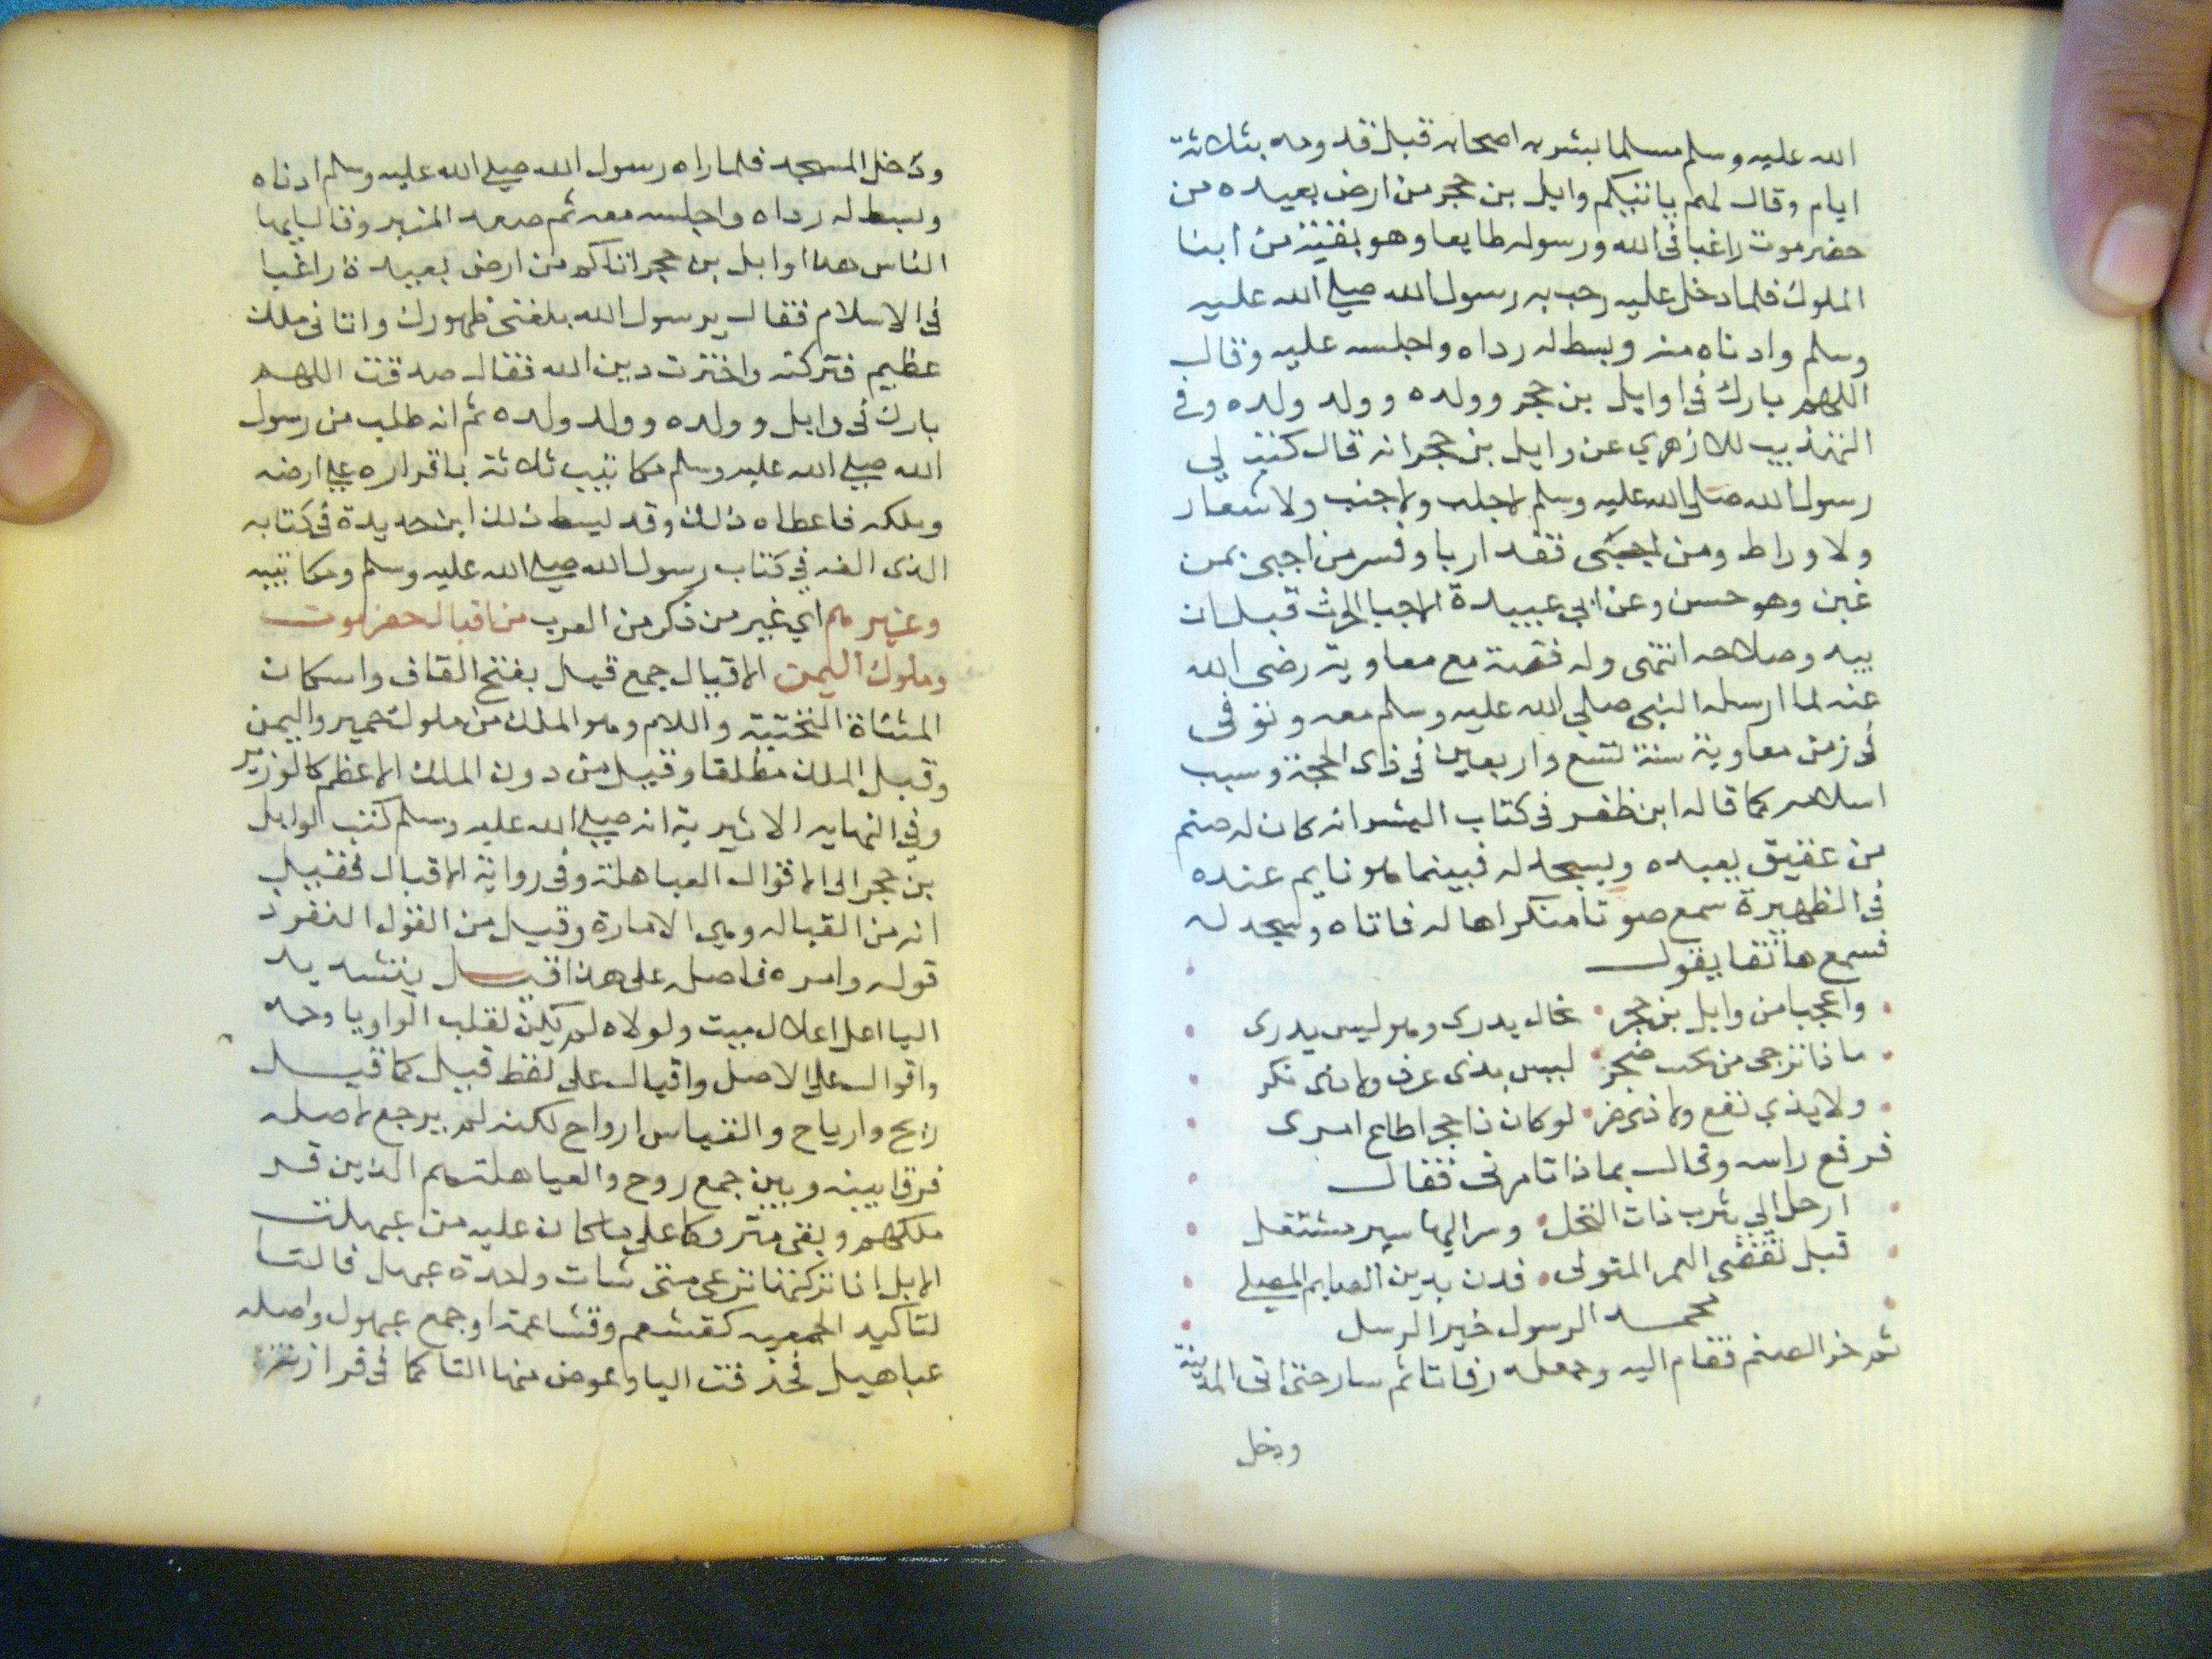 الله عليه وسلم مسلما بشر به اصحابه قبل قدومه بثلاثة
ايام وقال لهم ياتيكم وايل بن حجر من ارض بعيده من
حضرموت راغبا فى الله ورسوله طايعا وهو بقية من ابنا
الملوك فلما دخل عليه رحب به رسول الله صلى الله عليه
وسلم وادناه منه وبسط له رداه واجلسه عليه وقال
اللهم بارك فى اوايل بن حجر وولده وولد ولده وفى
التهذيب للازهري عن وايل بن حجر انه قال كتب لي
رسول الله صلى الله عليه وسلم لا جلب ولا جنب ولا شعار
ولا وراط ومن اجبى فقد اربا وفسر من اجبى بمن
غبن وهو حسن وعن ابي عبيدة الاجبا الحرث قبل ان
يبد وصلاحه انتهى وله قصة مع معاوية رضى الله
عنه لما ارسله النبى صلى الله عليه وسلم معه وتوفى
فى زمن معاوية سنة تسع واربعين فى ذى الحجة وسبب
اسلامه كما قاله ابن ظفر فى كتاب البشر انه كان له صنم
من عقيق يعبده ويسجد له فبينما هو نايم عنده
فى الظهيرة سمع صوتا منكرا هاله فاتاه وسجد له
فسمع هاتفا يقول
واعجبا من وايل بن حجر ٠ يخال يدرى وهو ليس يدرى
ماذا ترجى من نحت صخر ٠ ليس بذى عرف ولا ذى نكر
ولا بذي نفع ولا ذى ضر ٠ لو كان ذا حجر اطاع امرى
فرفع راسه وقال بماذا تامرنى فقال
ارحل الي يثرب ذات النخل ٠ وسر اليها سير مشتعل
قبل تقضى العمر المتولى ٠ فدن بدين الصايم المصلى
محمد الرسول خير الرسل
ثم خر الصنم فقام اليه وجعله رفاتا ثم سار حتى اتى المدينة
ودخل
ودخل المسجد فلما راه رسول الله صلى الله عليه وسلم ادناه
وبسط له رداه واجلسه معه ثم صعد المنبر وقال يايها
الناس هذا اوايل بن حجر اتاكم من ارض بعيدة راغبا
فى الاسلام فقال يرسول الله بلغنى ظهورك وانا فى ملك
عظيم فتركته واخترت دين الله فقال صدقت اللهم
بارك فى وايل وولده وولد ولده ثم انه طلب من رسول
الله صلى الله عليه وسلم مكاتيب ثلاثة باقراره على ارضه
وملكه فاعطاه ذلك وقد بسط ذلك ابن حديدة فى كتابه
الذى الفه في كتاب رسول الله صلى الله عليه وسلم ومكاتيبه
وغيرهم اي غير من ذكر من العرب من اقيال حضرموت
وملوك اليمن الاقيال جمع قيل بفتح القاف واسكان
المثناة التحتية واللام وهو الملك من ملوك حمير واليمن
وقيل الملك مطلقا وقيل من دون الملك الاعظم كالوزير
وفي النهايه الاثيرية انه صلى الله عليه وسلم كتب لوايل
بن حجر الى الاقوال العباهلة وفى رواية الاقيال فقيل
انه من القبالة وهي الامارة وقيل من القول النفوذ
قوله وامره فاصله على هذا قيل بتشديد
اليا اعل اعلال ميت ولولاه لم يكن لقلب الواو يا وجه
واقوال على الاصل واقيال على لفظ قيل كما قيل
ريح وارياح والقياس ارواح لكنه لم يرجع لاصله
فرقا بينه وبين جمع روح والعباهلة هم الذين قر
ملكهم وبقى متروكا على ما كان عليه من عبهلت
الابل اذا تركتها ترعى متى شات واحدة عبهل فالتا
لتاكيد الجمعيه كقشعم وقشاعمة او جمع عبهول واصله
عباهيل فحذفت اليا وعوض منها التا كما فى فرازنة